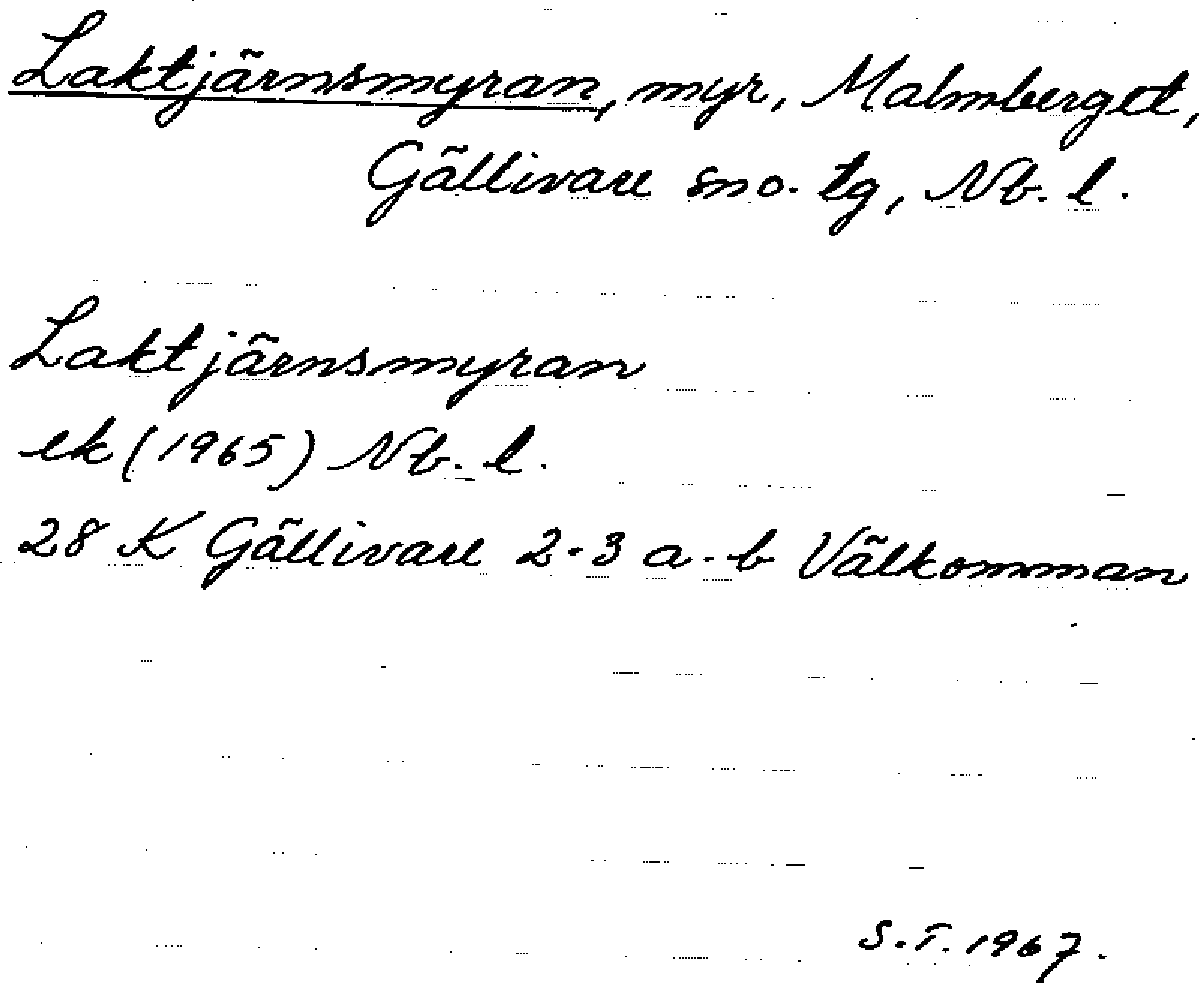 Laktjärnsmyran, myr, Malmberget,
Gällivare sno. tg, Nb. l.
Laktjärnsmyran
ek (1965) Nb. l.
28 K Gällivare 2-3 a-b Välkomman
S.T. 1967.